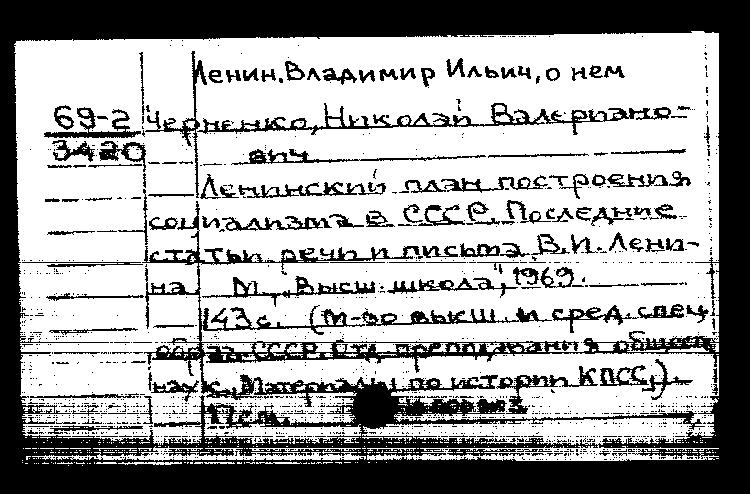 Ленин, Владимир Ильич, о нем
69-2 Черненко, Николай Валериано-
3420 вич
Ленинский план построения
социализма в СССР. Последние
статьи, речи и письма В.И. Лени-
на. М., "Высш. школа", 1969.
143 с. (М-во высш. и сред. спец.
образ. СССР. Отд. преподавания обществ.
наук. Материалы по истории КПСС).
17 см.